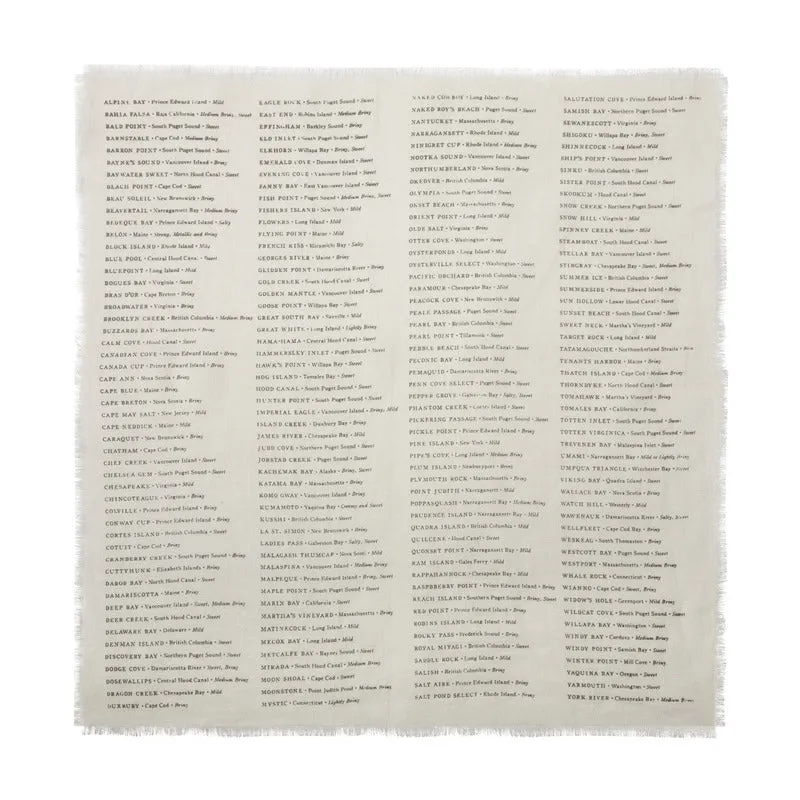 ALPINE BAY • Prince Edward Island • Mild
BAHIA FALSA • Baja California • Medium Briny, Sweet
BALD POINT • South Puget Sound • Sweet
BARNSTABLE • Cape Cod • Medium Briny
BARRON POINT • South Puget Sound • Sweet
BAYNE'S SOUND • Vancouver Island • Briny
BAYWATER SWEET • North Hood Canal • Sweet
BEACH POINT • Cape Cod • Sweet
BEAU SOLEIL • New Brunswick • Briny
BEAVERTAIL • Narragansett Bay • Medium Briny
BEDEQUE BAY • Prince Edward Island • Salty
BELON • Maine • Strong, Metallic and Briny
BLOCK ISLAND • Rhode Island • Mild
BLUE POOL • Central Hood Canal • Sweet
BLUEPOINT • Long Island • Mild
BOGUES BAY • Virginia • Sweet
BRAN D'OR • Cape Breton • Briny
BROADWATER • Virginia • Briny
BROOKLYN CREEK • British Columbia • Medium Briny
BUZZARDS BAY • Massachusetts • Briny
CALM COVE • Hood Canal • Sweet
CANADIAN COVE • Prince Edward Island • Briny
CANADA CUP • Prince Edward Island • Briny
CAPE ANN • Nova Scotia • Briny
CAPE BLUE • Maine • Briny
CAPE BRETON • Nova Scotia • Briny
CAPE MAY SALT • New Jersey • Mild
CAPE NEDDICK • Maine • Mild
CARAQUET • New Brunswick • Briny
CHATHAM • Cape Cod • Briny
CHEF CREEK • Vancouver Island • Sweet
CHELSEA GEM • South Puget Sound • Sweet
CHESAPEAKE • Virginia • Mild
CHINCOTEAGUE • Virginia • Briny
COLVILLE • Prince Edward Island • Briny
CONWAY CUP • Prince Edward Island • Briny
CORTES ISLAND • British Columbia • Sweet
COTUIT • Cape Cod • Briny
CRANBERRY CREEK • South Puget Sound • Briny
CUTTYHUNK • Elizabeth Islands • Briny
DABOB BAY • North Hood Canal • Sweet
DAMARISCOTTA • Maine • Briny
DEEP BAY • Vancouver Island • Sweet, Medium Briny
DEER CREEK • South Hood Canal • Sweet
DELAWARE BAY • Delaware • Mild
DENMAN ISLAND • British Columbia • Sweet
DISCOVERY BAY • Northern Puget Sound • Sweet
DODGE COVE • Damariscotta River • Sweet, Briny
DOSEWALLIPS • Central Hood Canal • Medium Briny
DRAGON CREEK • Chesapeake Bay • Mild
DUXBURY • Cape Cod • Briny
EAGLE ROCK • South Puget Sound • Sweet
EAST END • Robins Island • Medium Briny
EFFINGHAM • Barkley Sound • Briny
ELD INLET • South Puget Sound • Sweet
ELKHORN • Willapa Bay • Briny, Sweet
EMERALD COVE • Denman Island • Sweet
EVENING COVE • Vancouver Island • Sweet
FANNY BAY • East Vancouver Island • Sweet
FISH POINT • Puget Sound • Medium Briny, Sweet
FISHERS ISLAND • New York • Mild
FLOWERS • Long Island • Mild
FLYING POINT • Maine • Mild
FRENCH KISS • Miramichi Bay • Salty
GEORGES RIVER • Maine • Briny
GLIDDEN POINT • Damariscotta River • Briny
GOLD CREEK • South Hood Canal • Sweet
GOLDEN MANTLE • Vancouver Island • Sweet
GOOSE POINT • Willapa Bay • Sweet
GREAT SOUTH BAY • Sayville • Mild
GREAT WHITE • Long Island • Lightly Briny
HAMA-HAMA • Central Hood Canal • Sweet
HAMMERSLEY INLET • Puget Sound • Sweet
HAWK'S POINT • Willapa Bay • Sweet
HOG ISLAND • Tomales Bay • Sweet
HOOD CANAL • South Puget Sound • Sweet
HUNTER POINT • South Puget Sound • Sweet
IMPERIAL EAGLE • Vancouver Island • Briny, Mild
ISLAND CREEK • Duxbury Bay • Briny
JAMES RIVER • Chesapeake Bay • Mild
JUDD COVE • Northern Puget Sound • Sweet
JORSTAD CREEK • Puget Sound • Sweet
KACHEMAK BAY • Alaska • Briny, Sweet
KATAMA BAY • Massachusetts • Briny
KOMO GWAY • Vancouver Island • Briny
KUMAMOTO • Yaquina Bay • Creamy and Sweet
KUSSHI • British Columbia • Sweet
LA ST. SIMON • New Brunswick • Briny
LADIES PASS • Galveston Bay • Salty, Sweet
MALAGASH THUMCAP • Nova Scotia • Mild
MALASPINA • Vancouver Island • Medium Briny
MALPEQUE • Prince Edward Island • Briny
MAPLE POINT • South Puget Sound • Sweet
MARIN BAY • California • Sweet
MARTHA'S VINEYARD • Massachusetts • Briny
MATINECOCK • Long Island • Mild
MECOX BAY • Long Island • Mild
METCALFE BAY • Baynes Sound • Sweet
MIRADA • South Hood Canal • Medium Briny
MOON SHOAL • Cape Cod • Sweet
MOONSTONE • Point Judith Pond • Medium Briny
MYSTIC • Connecticut • Lightly Briny
NAKED COWBOY • Long Island • Briny
NAKED ROY'S BEACH • Puget Sound • Sweet
NANTUCKET • Massachusetts • Briny
NARRAGANSETT • Rhode Island • Mild
NINIGRET CUP • Rhode Island • Medium Briny
NOOTKA SOUND • Vancouver Island • Sweet
NORTHUMBERLAND • Nova Scotia • Briny
OKEOVER • British Columbia • Mild
OLYMPIA • South Puget Sound • Sweet
ONSET BEACH • Massachusetts • Briny
ORIENT POINT • Long Island • Mild
OLDE SALT • Virginia • Briny
OTTER COVE • Washington • Sweet
OYSTERPONDS • Long Island • Mild
OYSTERVILLE SELECT • Washington • Sweet
PACIFIC ORCHARD • British Columbia • Sweet
PARAMOUR • Chesapeake Bay • Mild
PEACOCK COVE • New Brunswick • Mild
PEALE PASSAGE • Puget Sound • Sweet
PEARL BAY • British Columbia • Sweet
PEARL POINT • Tillamook • Sweet
PEBBLE BEACH • South Hood Canal • Sweet
PECONIC BAY • Long Island • Mild
PEMAQUID • Damariscotta River • Briny
PENN COVE SELECT • Puget Sound • Sweet
PEPPER GROVE • Galveston Bay • Salty, Sweet
PHANTOM CREEK • Cortes Island • Sweet
PICKERING PASSAGE • South Puget Sound • Sweet
PICKLE POINT • Prince Edward Island • Briny
PINE ISLAND • New York • Mild
PIPE'S COVE • Long Island • Medium Briny
PLUM ISLAND • Newburyport • Briny
PLYMOUTH ROCK • Massachusetts • Briny
POINT JUDITH • Narragansett • Mild
POPPASQUASH • Narragansett Bay • Medium Briny
PRUDENCE ISLAND • Narragansett Bay • Mild
QUADRA ISLAND • British Columbia • Mild
QUILCENE • Hood Canal • Sweet
QUONSET POINT • Narragansett Bay • Mild
RAM ISLAND • Gales Ferry • Mild
RAPPAHANNOCK • Chesapeake Bay • Mild
RASPBERRY POINT • Prince Edward Island • Briny
REACH ISLAND • Southern Puget Sound • Briny, Sweet
RED POINT • Prince Edward Island • Briny
ROBINS ISLAND • Long Island • Mild
ROCKY PASS • Frederick Sound • Briny
ROYAL MIYAGI • British Columbia • Sweet
SADDLE ROCK • Long Island • Mild
SALISH • British Columbia • Briny
SALT AIRE • Prince Edward Island • Briny
SALT POND SELECT • Rhode Island • Briny
SALUTATION COVE • Prince Edward Island • Briny
SAMISH BAY • Northern Puget Sound • Sweet
SEWANSCOTT • Virginia • Briny
SHIGOKU • Willapa Bay • Briny, Sweet
SHINNECOCK • Long Island • Mild
SHIP'S POINT • Vancouver Island • Sweet
SINKU • British Columbia • Sweet
SISTER POINT • South Hood Canal • Sweet
SKOOKUM • Hood Canal • Sweet
SNOW CREEK • Northern Puget Sound • Sweet
SNOW HILL • Virginia • Mild
SPINNEY CREEK • Maine • Mild
STEAMBOAT • South Puget Sound • Sweet
STELLAR BAY • Vancouver Island • Sweet
STINGRAY • Chesapeake Bay • Sweet, Medium Briny
SUMMER ICE • British Columbia • Sweet
SUMMERSIDE • Prince Edward Island • Briny
SUN HOLLOW • Lower Hood Canal • Sweet
SUNSET BEACH • South Hood Canal • Sweet
SWEET NECK • Martha's Vineyard • Mild
TARGET ROCK • Long Island • Mild
TATAMAGOUCHE • Northumberland Straits • Briny
TENANTS HARBOR • Maine • Briny
THATCH ISLAND • Cape Cod • Medium Briny
THORNDYKE • North Hood Canal • Sweet
TOMAHAWK • Martha's Vineyard • Briny
TOMALES BAY • California • Briny
TOTTEN INLET • South Puget Sound • Sweet
TOTTEN VIRGINICA • South Puget Sound • Sweet
TREVENEN BAY • Malaspina Inlet • Sweet
UMAMI • Narragansett Bay • Mild to Lightly Briny
UMPQUA TRIANGLE • Winchester Bay • Sweet
VIKING BAY • Quadra Island • Sweet
WALLACE BAY • Nova Scotia • Briny
WATCH HILL • Westerly • Mild
WAWENAUK • Damariscotta River • Salty, Sweet
WELLFLEET • Cape Cod Bay • Briny
WESKEAG • South Thomaston • Briny
WESTCOTT BAY • Puget Sound • Briny
WESTPORT • Massachusetts • Medium Briny
WHALE ROCK • Connecticut • Briny
WIANNO • Cape Cod • Medium Briny
WIDOW'S HOLE • Greenport • Mild Briny
WILDCAT COVE • Puget Sound • Sweet
WILLAPA BAY • Washington • Sweet
WINDY BAY • Cordova • Medium Briny
WINDY POINT • Samish Bay • Sweet
WINTER POINT • Mill Cove • Briny
YAQUINA BAY • Oregon • Sweet
YARMOUTH • Washington • Sweet
YORK RIVER • Chesapeake Bay • Medium Briny